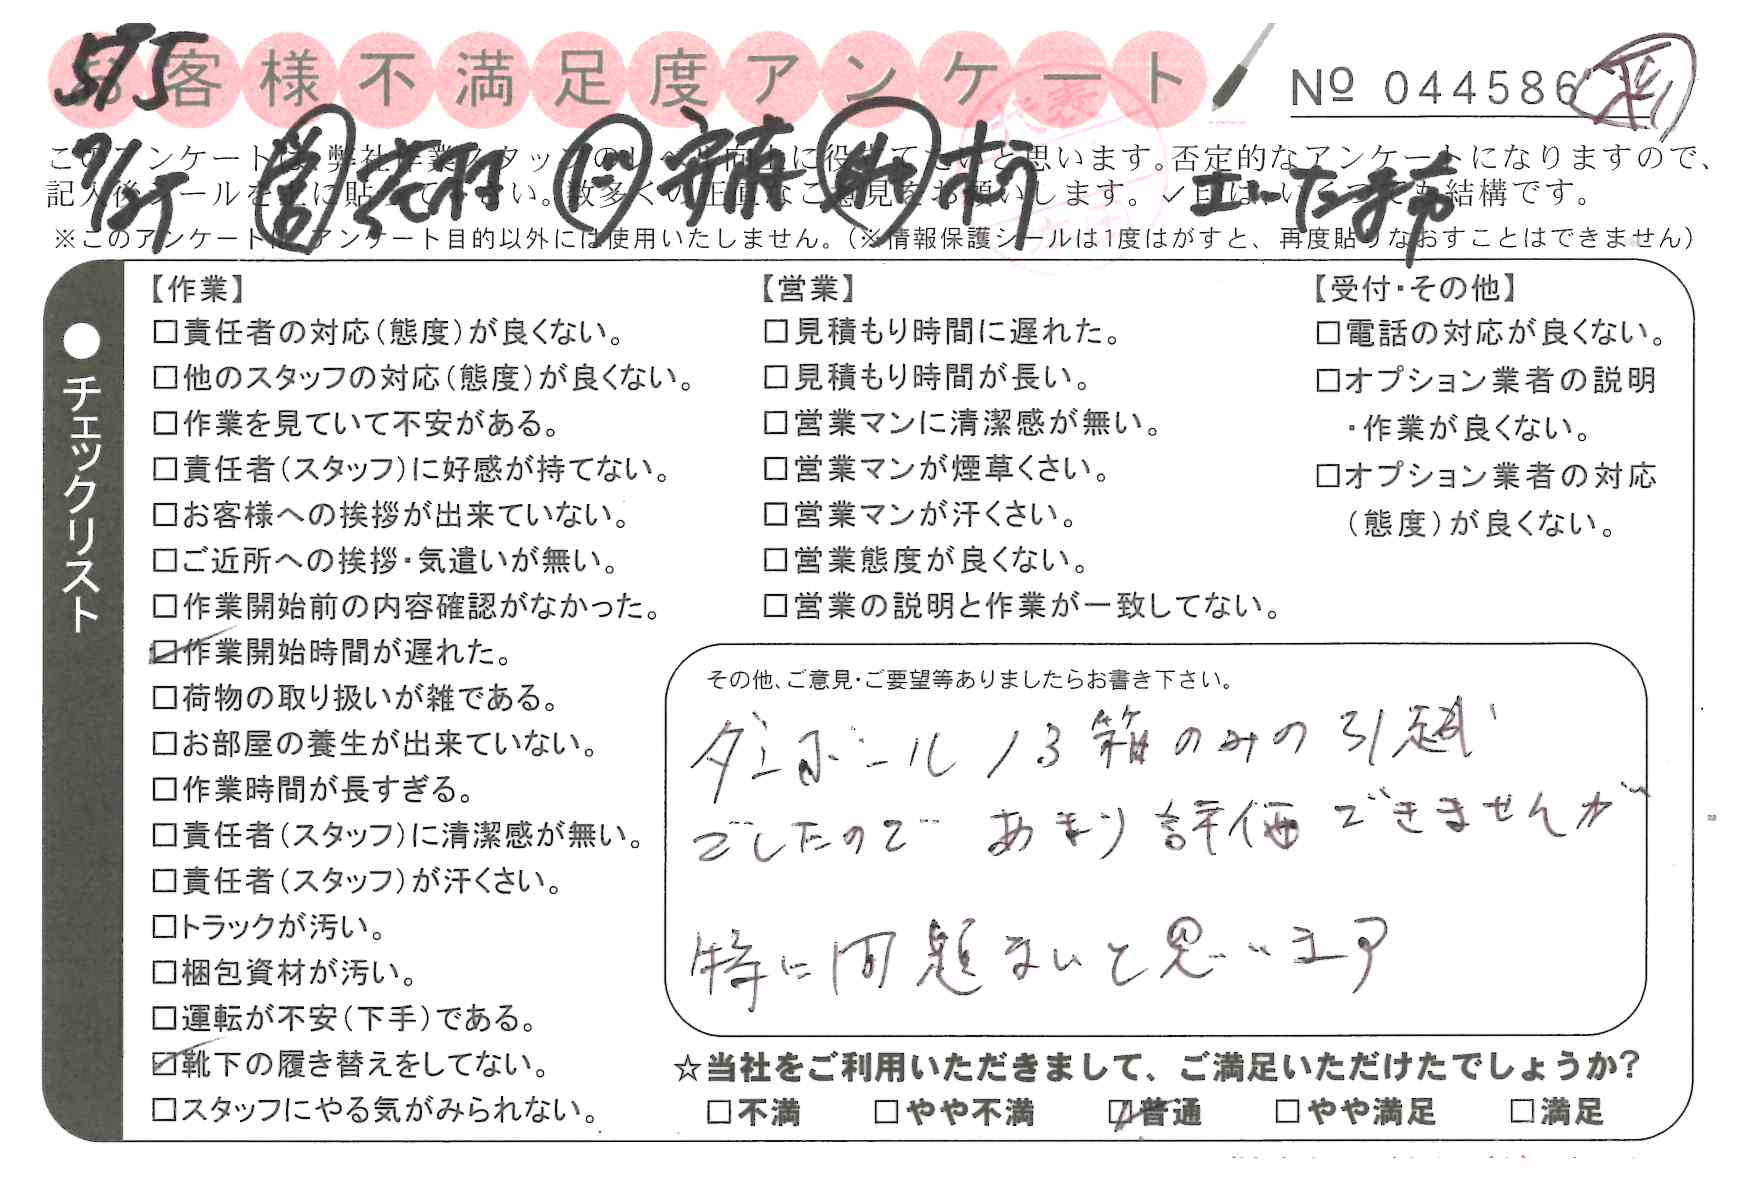 お客様不満足度アンケート
№ 044586
575
7/25
このアンケートは、弊社作業スタッフのレベル向上に役立てたいと思います。否定的なアンケートになりますので、
記入後シールを上に貼って下さい。数多くの正直なご意見をお願いします。✓印は、いくつでも結構です。
※このアンケートは、アンケート目的以外には使用いたしません。（※情報保護シールは1度はがすと、再度貼りなおすことはできません）
●チェックリスト
【作業】
□責任者の対応（態度）が良くない。
□他のスタッフの対応（態度）が良くない。
□作業を見ていて不安がある。
□責任者（スタッフ）に好感が持てない。
□お客様への挨拶が出来ていない。
□ご近所への挨拶・気遣いが無い。
□作業開始前の内容確認がなかった。
☑作業開始時間が遅れた。
□荷物の取り扱いが雑である。
□お部屋の養生が出来ていない。
□作業時間が長すぎる。
□責任者（スタッフ）に清潔感が無い。
□責任者（スタッフ）が汗くさい。
□トラックが汚い。
□梱包資材が汚い。
□運転が不安（下手）である。
☑靴下の履き替えをしてない。
□スタッフにやる気がみられない。
【営業】
□見積もり時間に遅れた。
□見積もり時間が長い。
□営業マンに清潔感が無い。
□営業マンが煙草くさい。
□営業マンが汗くさい。
□営業態度が良くない。
□営業の説明と作業が一致してない。
【受付・その他】
□電話の対応が良くない。
□オプション業者の説明
・作業が良くない。
□オプション業者の対応
（態度）が良くない。
その他、ご意見・ご要望等ありましたらお書き下さい。
ダンボール13箱のみの引越
でしたので あまり評価できませんが
特に問題ないと思います
☆当社をご利用いただきまして、ご満足いただけたでしょうか？
□不満 □やや不満 ☑普通 □やや満足 □満足